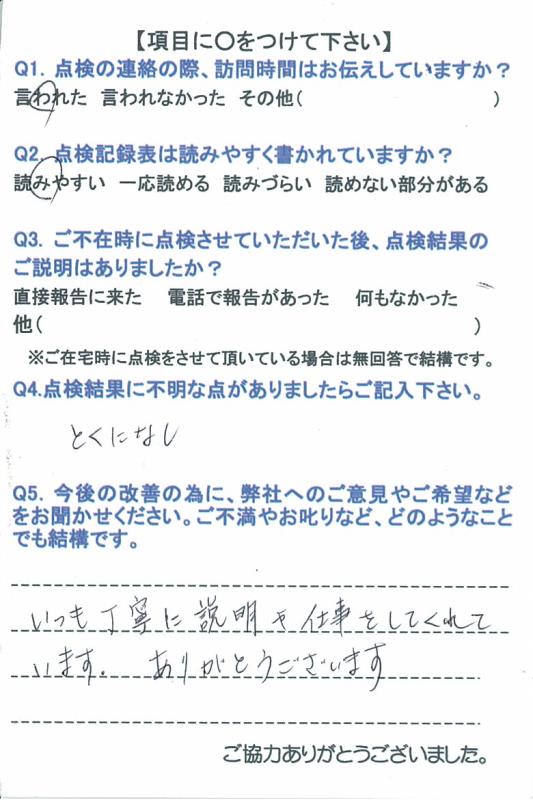 【項目に〇をつけて下さい】
Q1. 点検の連絡の際、訪問時間はお伝えしていますか？
言われた 言われなかった その他(　　　　　　　　　　)
Q2. 点検記録表は読みやすく書かれていますか？
読みやすい 一応読める 読みづらい 読めない部分がある
Q3. ご不在時に点検させていただいた後、点検結果の
ご説明はありましたか？
直接報告に来た 電話で報告があった 何もなかった
他(　　　　　　　　　　　　　　　　　　　　　　　　)
※ご在宅時に点検をさせて頂いている場合は無回答で結構です。
Q4.点検結果に不明な点がありましたらご記入下さい。
とくになし
Q5. 今後の改善の為に、弊社へのご意見やご希望など
をお聞かせください。ご不満やお叱りなど、どのようなこと
でも結構です。
いつも丁寧に説明や仕事をしてくれて
います. ありがとうございます
ご協力ありがとうございました。